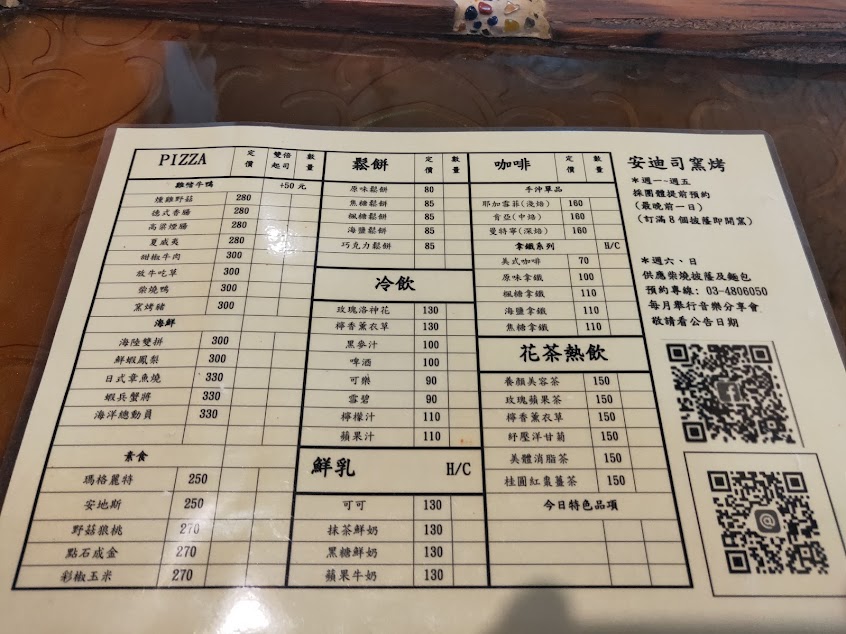 PIZZA 定價 雙倍起司 數量
雞啃牛鴨 +50元
燻雞野菇 280
德式香腸 280
高粱煙腸 280
夏威夷 280
甜椒牛肉 300
放牛吃草 300
柴燒鴨 300
窯烤豬 300
海鮮
海陸雙拼 300
鮮蝦鳳梨 300
日式章魚燒 330
蝦兵蟹將 330
海洋總動員 330
素食
瑪格麗特 250
安地斯 250
野菇狼桃 270
點石成金 270
彩椒玉米 270
鬆餅 定價 數量
原味鬆餅 80
焦糖鬆餅 85
楓糖鬆餅 85
海鹽鬆餅 85
巧克力鬆餅 85
冷飲
玫瑰洛神花 130
檸香薰衣草 130
黑麥汁 100
啤酒 100
可樂 90
雪碧 90
檸檬汁 110
蘋果汁 110
鮮乳 H/C
可可 130
抹茶鮮奶 130
黑糖鮮奶 130
蘋果牛奶 130
咖啡 定價 數量
手沖單品
耶加雪菲(淺焙) 160
肯亞(中焙) 160
曼特寧(深焙) 160
拿鐵系列 H/C
美式咖啡 70
原味拿鐵 100
楓糖拿鐵 110
海鹽拿鐵 110
焦糖拿鐵 110
花茶熱飲
養顏美容茶 150
玫瑰蘋果茶 150
檸香薰衣草 150
紓壓洋甘菊 150
美體消脂茶 150
桂圓紅棗薑茶 150
今日特色品項
安迪司窯烤
*週一~週五
採團體提前預約
(最晚前一日)
(訂滿8個披薩即開窯)
*週六、日
供應柴燒披薩及麵包
預約專線: 03-4806050
每月舉行音樂分享會
敬請看公告日期